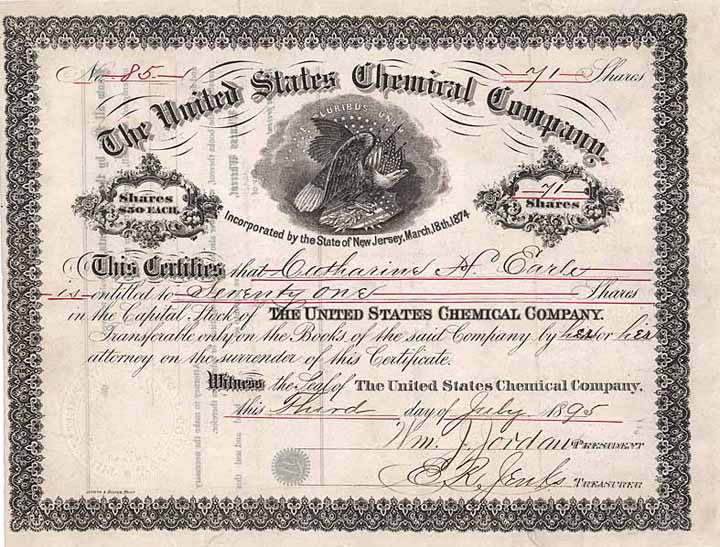 No. 85
71 Shares
The United States Chemical Company.
E PLURIBUS UNUM
Shares
$50 EACH.
71
Shares
Incorporated by the State of New Jersey, March, 18th, 1874
This Certifies that Catharine N. Earle
is entitled to Seventy one Shares
in the Capital Stock of THE UNITED STATES CHEMICAL COMPANY.
Transferable only on the Books of the said Company by her or her
attorney on the surrender of this Certificate.
Witness the Seal of The United States Chemical Company,
this Third day of July 1895
Wm. Jordan PRESIDENT
E. R. Jenks TREASURER